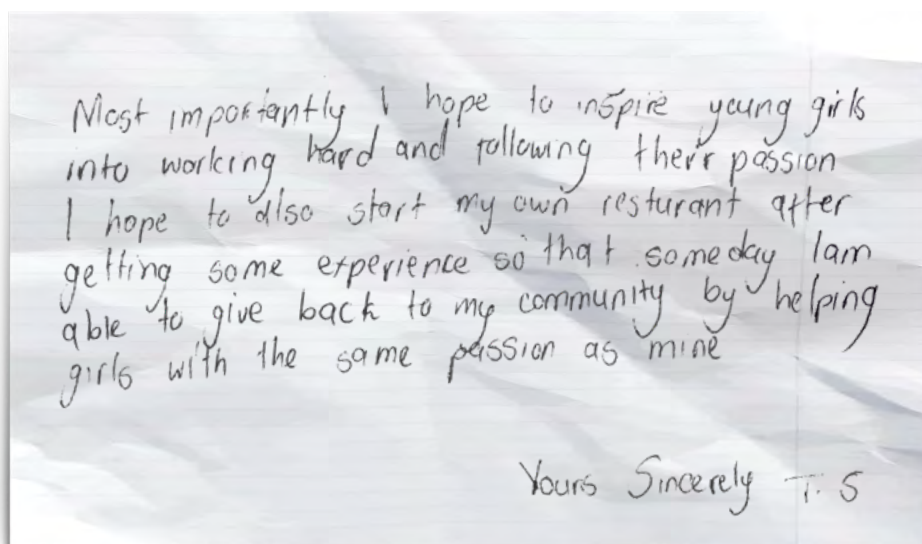 Most importantly I hope to inspire young girls
into working hard and following their passion
I hope to also start my own resturant after
getting some experience so that someday I am
able to give back to my community by helping
girls with the same passion as mine
Yours Sincerely T. S